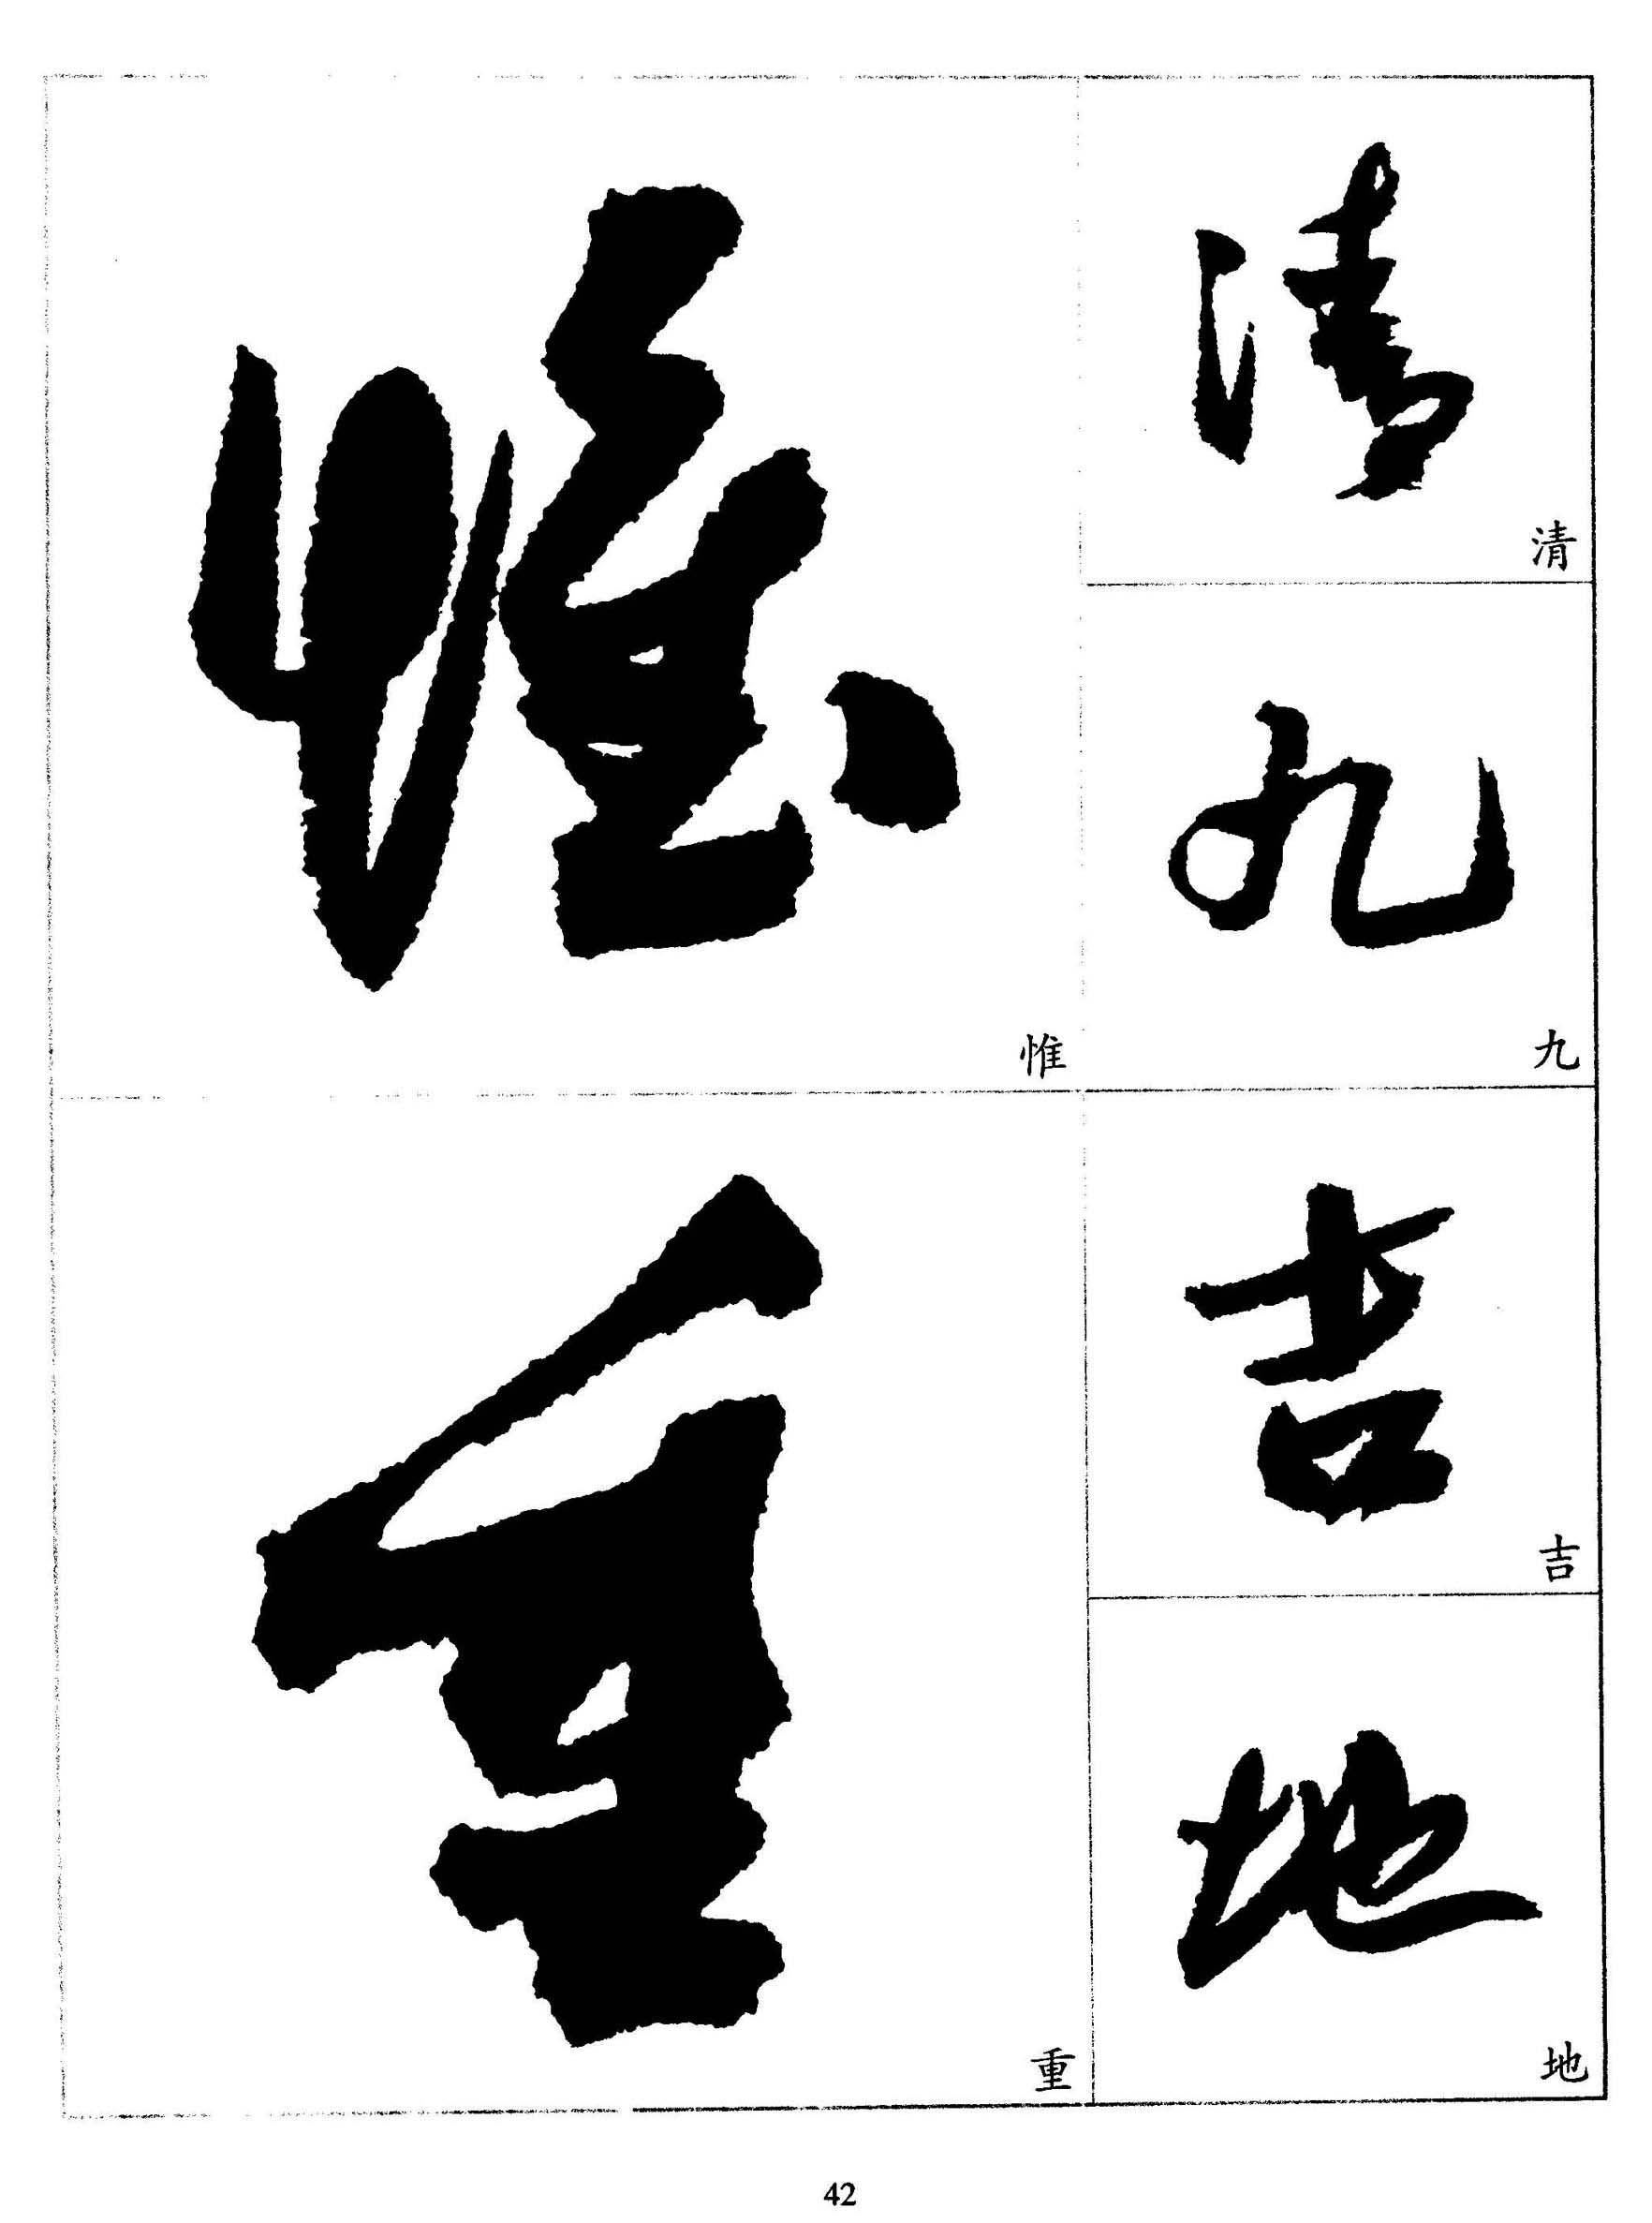 清
清
九
九
吉
吉
地
地
惟
惟
重
重
42